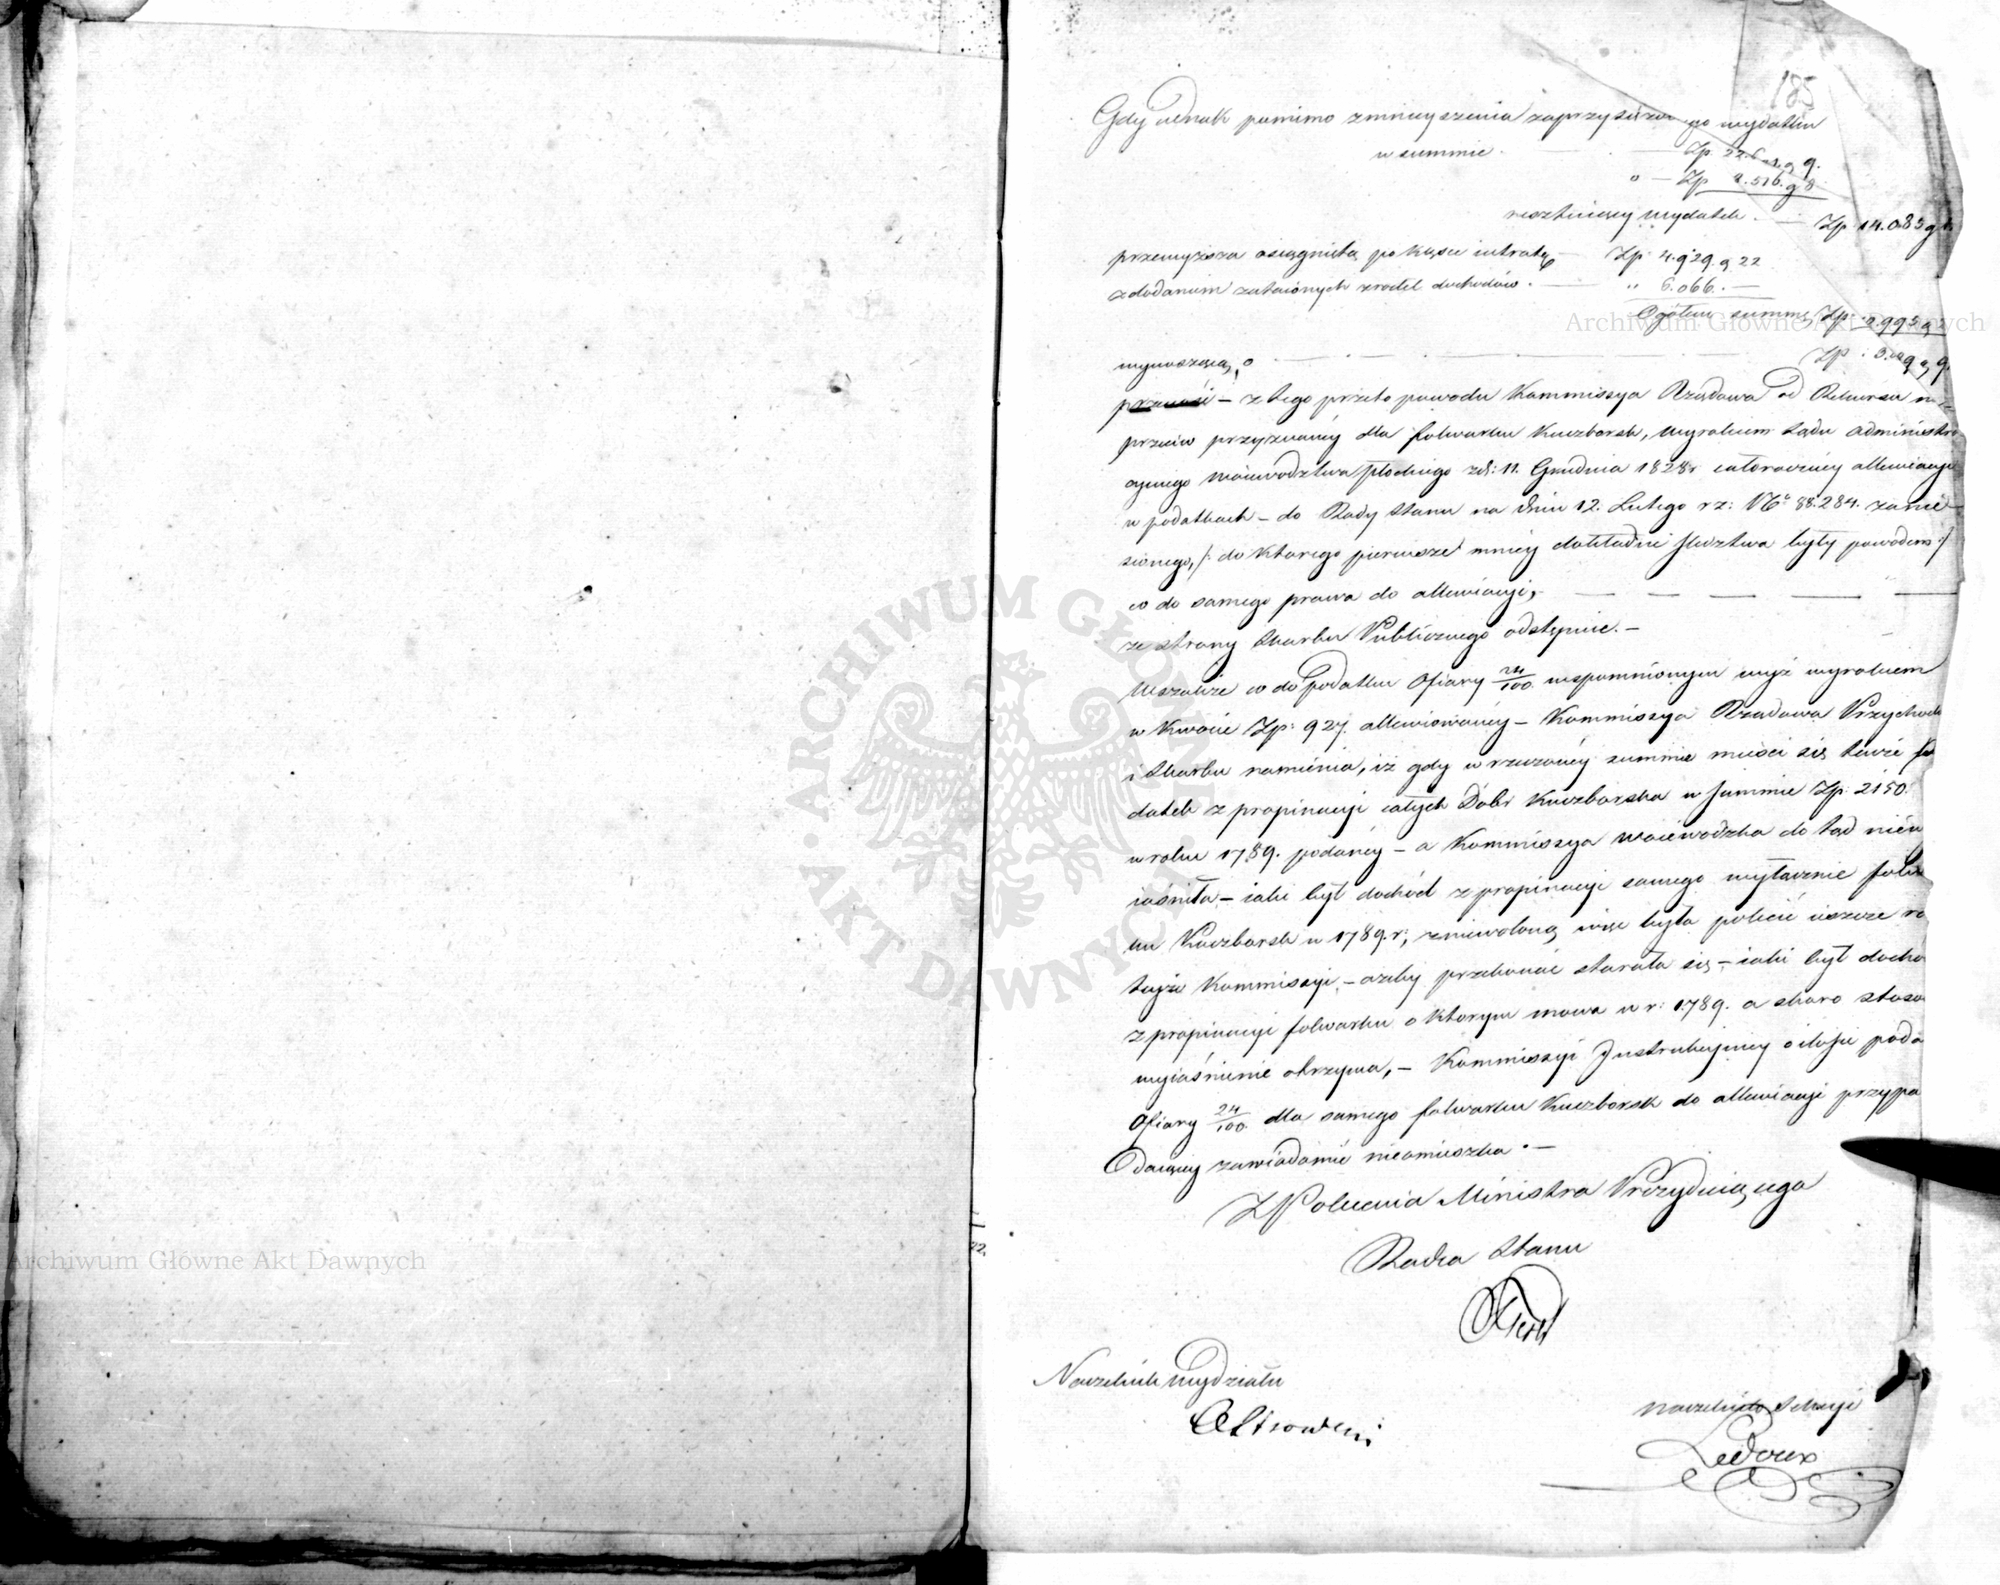 185
Gdy iednak pomimo zmnieyszenia zaprzysiężonego wydatku
w summie Zp. 22.6 g 9.
o — Zp 8.516. g 8
resztuiący wydatek — Zp 14.085 g
przewyższa osiągniętą po kąsu intratę — Zp: 4.929. g 22
z dodaniem zataionych zrodeł dochodów. — " 6.066. —
Ogółem summę Zp: .995 g
wynoszącą, o — Zp : 3. g 9.
— z tego przeto powodu Kommissya Rządowa od Rekursu na-
przeciw przyznanéy dla folwarku Kuczbork, wyrokiem Sądu Administra
cyinego Woiewodztwa Płockiego zd: 11. Grudnia 1828 r całoroczney allewiacyi
w podatkach — do Rady Stanu na dniu 12. Lutego r z: No 88.284. zanie-
sionego, /: do ktorego pierwsze mniéy dokładne śledztwa były powodem :/
co do samego prawa do allewiacyi, —
ze strony Skarbu Publicznego odstępuie. —
Wszakże co do podatku Ofiary 24/100 wspomnionym wyż wyrokiem
w kwocie Zp: 927. allewiowanéy — Kommissya Rządowa Przychod
i Skarbu namienia, iż gdy w rzeczonéy summie mieści się także po
datek z propinacyi całych Dóbr Kuczborska w summie Zp: 2150.
w roku 1789. podanéy — a Kommissya Woiewodzka do tąd niew
iaśniła — iaki był dochód z propinacyi samego wyłącznie folwa
ku Kuczbork w 1789. r:, zniewoloną więc była polecić ieszcze ra
teyże Kommissyi, — ażeby przekonać starała się — iaki był docho
z propinacyi folwarku o ktorym mowa w r: 1789. a skoro stoso
wyiaśnienie otrzyma, — Kommissyi Instrukcyiney o ilości poda
Ofiary 24/100 dla samego folwarku Kuczbork do allewiacyi przypa
daiącey zawiadomić nieomieszka. —
Z Polecenia Ministra Prezyduiącego
Radca Stanu
Naczelnik Wydziału
Naczelnik Sekcyi
Ledoux
Archiwum Główne Akt Dawnych
Archiwum Główne Akt Dawnych
· ARCHIWUM GŁÓWNE · AKT DAWNYCH